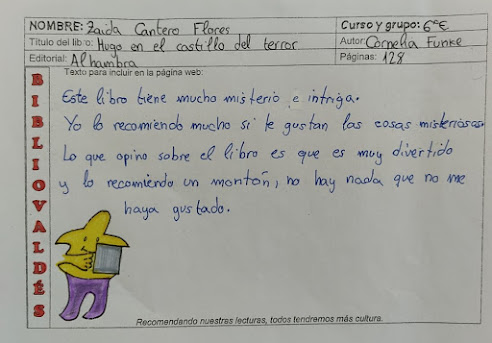 NOMBRE: Zaida Cantero Flores
Curso y grupo: 6ºE
Título del libro: Hugo en el castillo del terror
Autor: Cornelia Funke
Editorial: Alhambra
Páginas: 128
BIBLIOVALDÉS
Texto para incluir en la página web:
Este libro tiene mucho misterio e intriga.
Yo lo recomiendo mucho si te gustan las cosas misteriosas.
Lo que opino sobre el libro es que es muy divertido
y lo recomiendo un montón, no hay nada que no me
haya gustado.
Recomendando nuestras lecturas, todos tendremos más cultura.